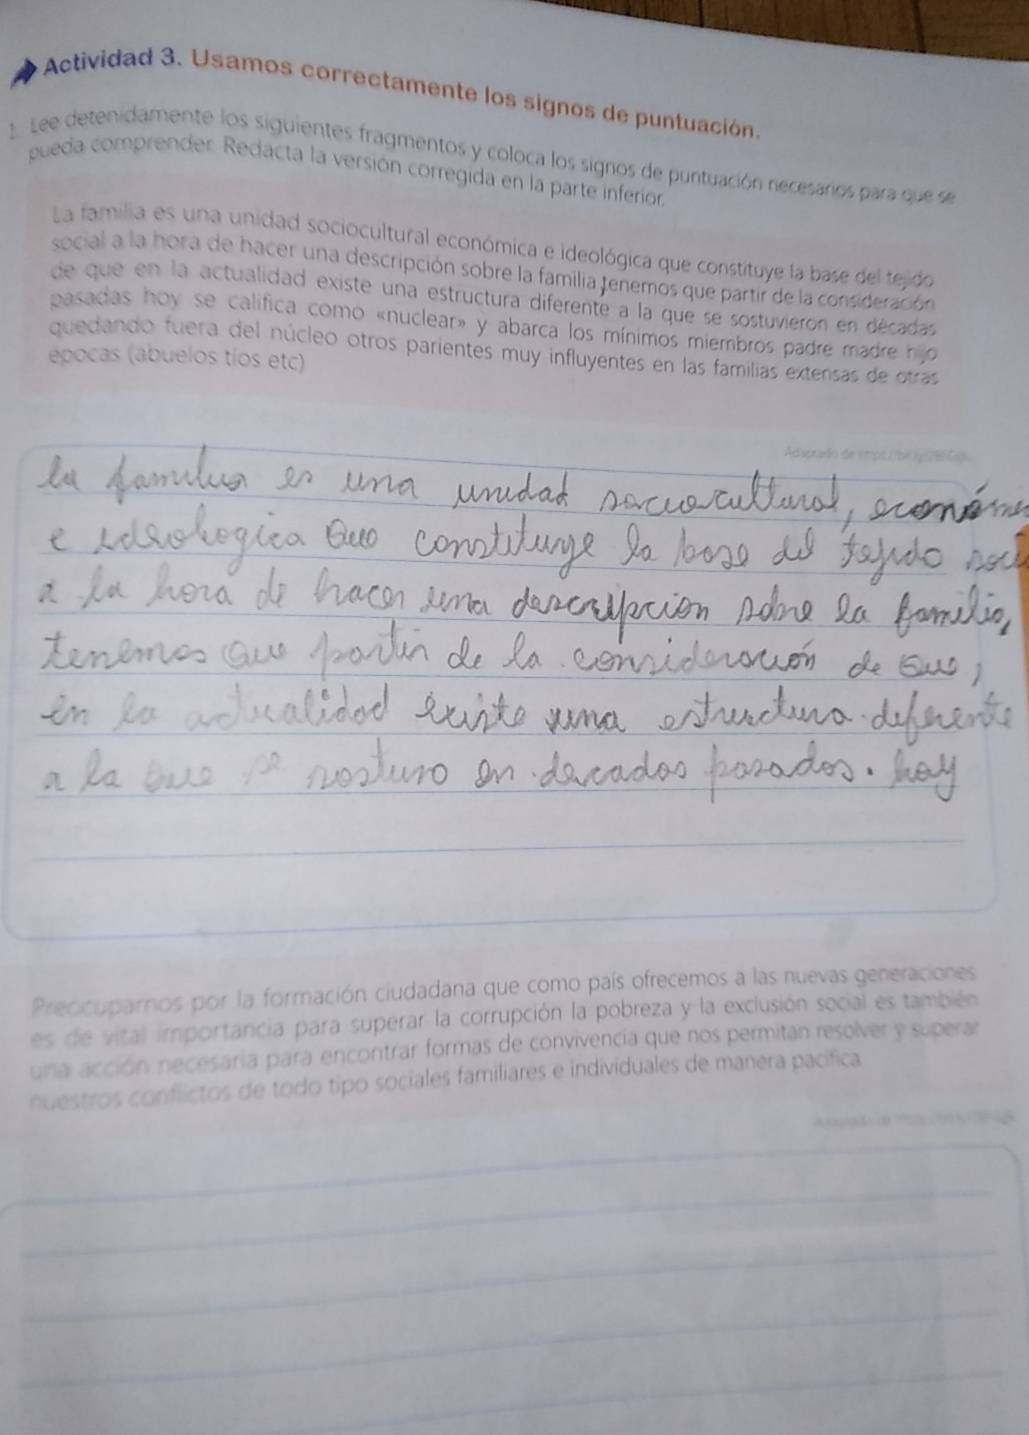 Actividad 3. Usamos correctamente los signos de puntuación.
1. Lee detenidamente los siguientes fragmentos y coloca los signos de puntuación necesarios para que se
pueda comprender. Redacta la versión corregida en la parte inferior.
La familia es una unidad sociocultural económica e ideológica que constituye la base del tejido
social a la hora de hacer una descripción sobre la familia tenemos que partir de la consideración
de que en la actualidad existe una estructura diferente a la que se sostuvieron en décadas
pasadas hoy se califica como «nuclear» y abarca los mínimos miembros padre madre hijo
quedando fuera del núcleo otros parientes muy influyentes en las familias extensas de otras
épocas (abuelos tíos etc)
Adaptado de
la familia es una unidad sociocultural, económi
e ideologica que constituye la base del tejido soci
a la hora de hacer una descripcion sobre la familia,
tenemos que partir de la consideración de que,
en la actualidad existe una estructura diferente
a la que se sosturo en decadas pasados. hoy
Preocuparnos por la formación ciudadana que como país ofrecemos a las nuevas generaciones
es de vital importancia para superar la corrupción la pobreza y la exclusión social es también
una acción necesaria para encontrar formas de convivencia que nos permitan resolver y superar
nuestros conflictos de todo tipo sociales familiares e individuales de manera pacífica
Adaptado de